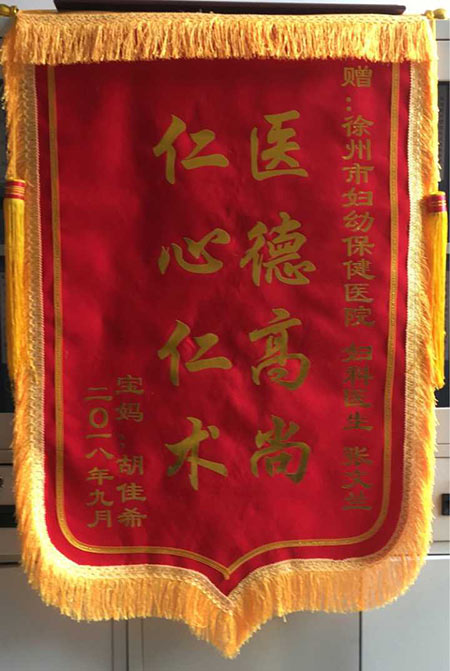 赠：徐州市妇幼保健医院 妇科医生 张文兰
医德高尚
仁心仁术
宝妈：胡佳希
二〇一八年九月